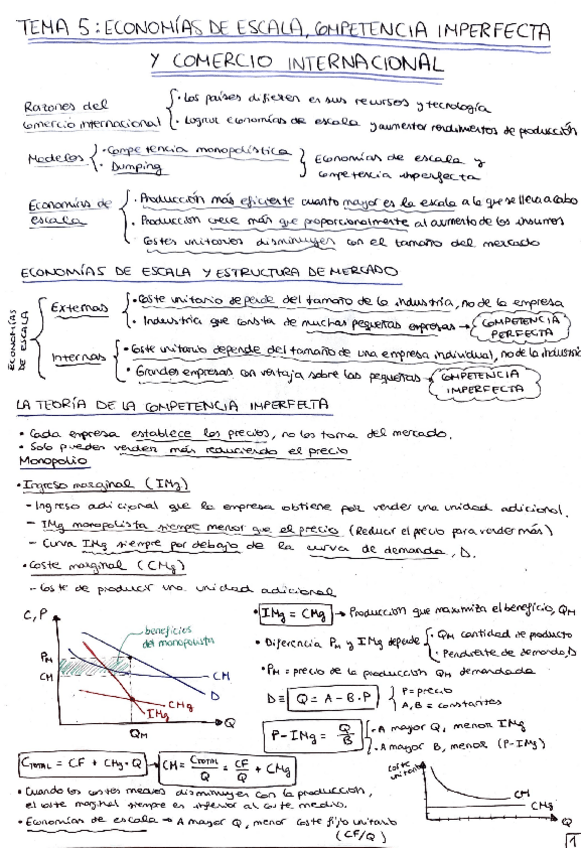 TEMA 5: ECONOMÍAS DE ESCALA, COMPETENCIA IMPERFECTA
Y COMERCIO INTERNACIONAL
Razones del comercio internacional
· Los países difieren en sus recursos y tecnología
· Lograr economías de escala y aumentar rendimientos de producción
Modelos
· Competencia monopolística
· Dumping
Economías de escala y
competencia imperfecta
Economías de escala
· Producción más eficiente cuanto mayor es la escala a la que se lleva a cabo
· Producción crece más que proporcionalmente al aumento de los insumos
Costes unitarios disminuyen con el tamaño del mercado
ECONOMÍAS DE ESCALA Y ESTRUCTURA DE MERCADO
ECONOMÍAS DE ESCALA
Externas
· Coste unitario depende del tamaño de la industria, no de la empresa
· Industria que consta de muchas pequeñas empresas → COMPETENCIA PERFECTA
Internas
· Coste unitario depende del tamaño de una empresa individual, no de la industria
· Grandes empresas con ventaja sobre las pequeñas → COMPETENCIA IMPERFECTA
LA TEORÍA DE LA COMPETENCIA IMPERFECTA
· Cada empresa establece los precios, no los toma del mercado.
· Solo pueden vender más reduciendo el precio
Monopolio
· Ingreso marginal (IMg)
- Ingreso adicional que la empresa obtiene por vender una unidad adicional.
- IMg monopolista siempre menor que el precio (Reducir el precio para vender más)
- Curva IMg siempre por debajo de la curva de demanda, D.
· Coste marginal (CMg)
- Coste de producir una unidad adicional
C, P
beneficios
del monopolista
PM
CM
CM
D
CMg
IMg
QM
Q
· IMg = CMg → Producción que maximiza el beneficio, QM
· Diferencia PM y IMg depende
· QM cantidad de producto
· Pendiente de demanda, D
· PM = precio de la producción QM demandada
D ≡ Q = A - B · P
P = precio
A, B = constantes
P - IMg = Q/B
- A mayor Q, menor IMg
- A mayor B, menor (P-IMg)
CTOTAL = CF + CMg · Q → CM = CTOTAL/Q = CF/Q + CMg
· Cuando los costes medios disminuyen con la producción,
el coste marginal siempre es inferior al coste medio.
· Economías de escala → A mayor Q, menor coste fijo unitario
(CF/Q)
coste
unitario
CM
CMg
Q
1